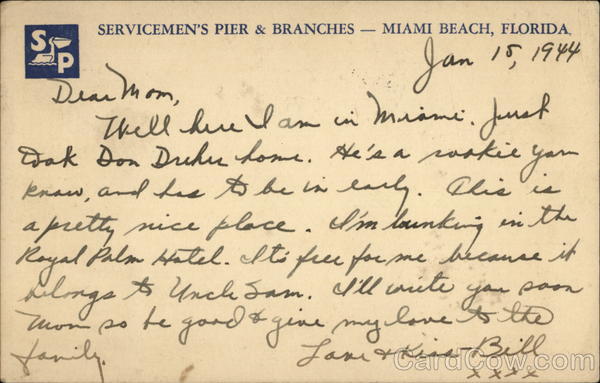 SP
SERVICEMEN'S PIER & BRANCHES — MIAMI BEACH, FLORIDA
Jan 15, 1944
Dear Mom,
Well here I am in Miami. Just
took Don Dreher home. He's a rookie you
know, and has to be in early. This is
a pretty nice place. I'm bunking in the
Royal Palm Hotel. It's free for me because it
belongs to Uncle Sam. I'll write you soon
Mom so be good & give my love to the
family.
Love & Kiss - Bill
xxxx
CardCow.com